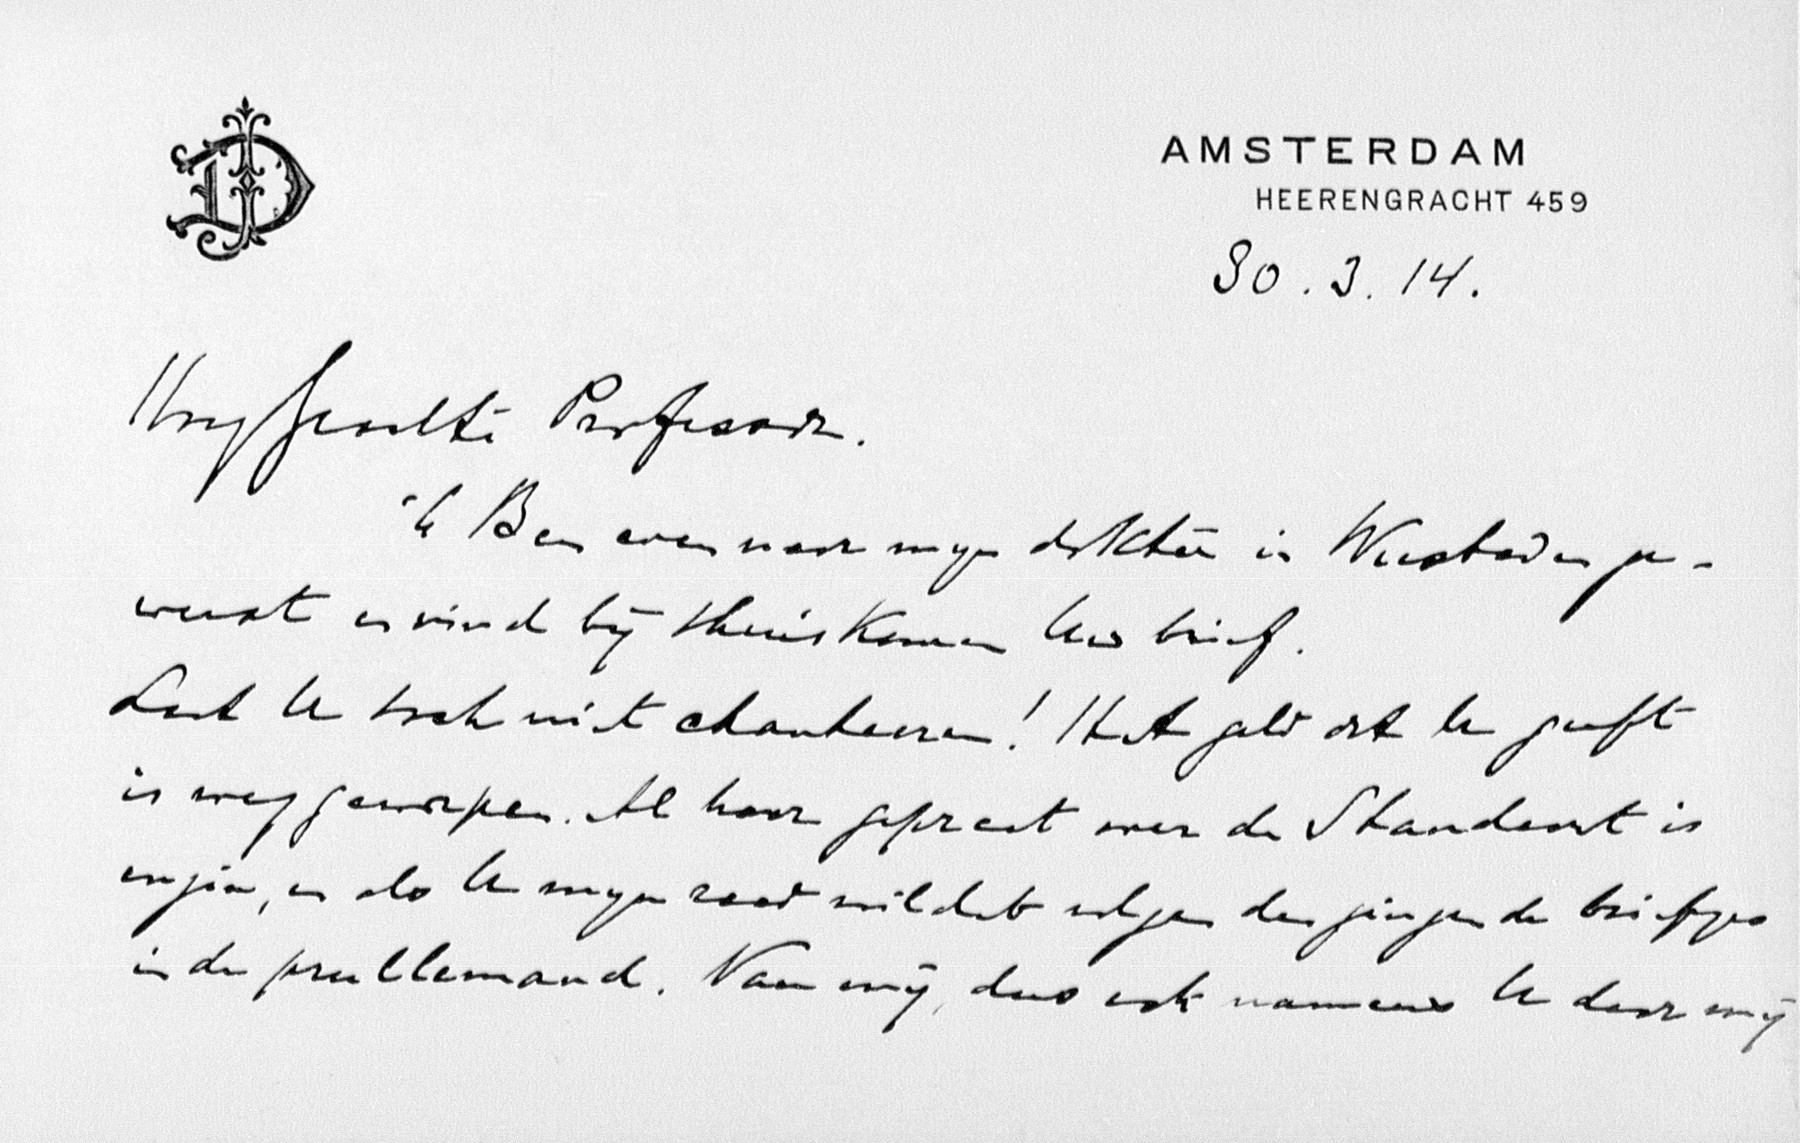 AMSTERDAM
HEERENGRACHT 459
30.3.14.
Hooggeachte Professor.
'k Ben even naar myn dokter in Wiesbaden ge-
weest en vind bij thuiskomen Uw brief.
Laat U toch niet chanteeren! Het geld dat U geeft
is weggeworpen. Al haar gepraat over de Standaart is
en als U myn raad wildet volgen dan gingen de briefjes
in de prullemand. Van mij, dus ook namens U door mij